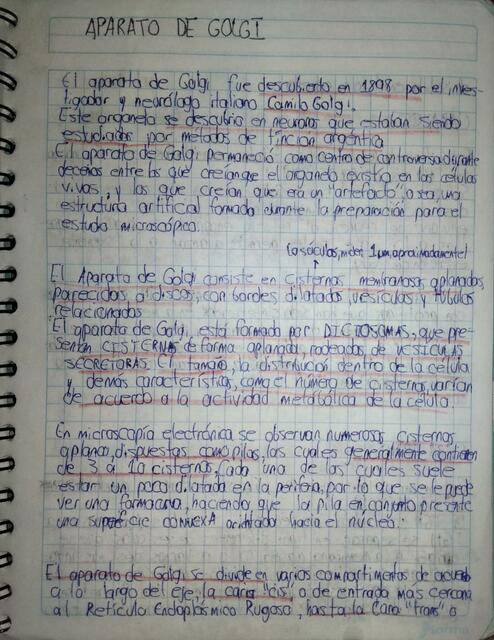 APARATO DE GOLGI
El aparato de Golgi fue descubierto en 1898 por el inves-
tigador y neurólogo italiano Camilo Golgi.
Este organelo se descubrio en neuronas que estaban siendo
estudiadas por métodos de tinción argéntica
El aparato de Golgi permaneció como centro de controversa durante
decenas entre los que creían que el organelo existía en las células
vivas, y los que creían que era un "artefacto" o sea, una
estructura artificial formada durante la preparación para el
estudio microscópico.
(o sáculos, miden 1 μm, aproximadamente)
El Aparato de Golgi consiste en cisternas membranosas aplanadas
parecidas a discos, con bordes dilatados, vesículas y túbulos
relacionados
El aparato de Golgi está formado por DICTOSOMAS, que pre-
sentan CISTERNAS de forma aplanada, rodeadas de VESICULAS
SECRETORAS. El tamaño, la distribución dentro de la célula
y demás características, como el número de cisternas, varían
de acuerdo a la actividad metabólica de la célula.
En microscopía electrónica se observan numerosas cisternas
aplanadas dispuestas como pilas, las cuales generalmente contienen
de 3 a 10 cisternas, cada una de las cuales suele
estar un poco dilatada en la periferia, por lo que se le puede
ver una forma curva, haciendo que la pila en conjunto presente
una superficie CONVEXA orientada hacia el núcleo.
El aparato de Golgi se divide en varios compartimentos de acuerdo
a lo largo del eje, la cara "cis", o de entrada mas cercana
al Retículo Endoplásmico Rugoso, hasta la cara "trans" o